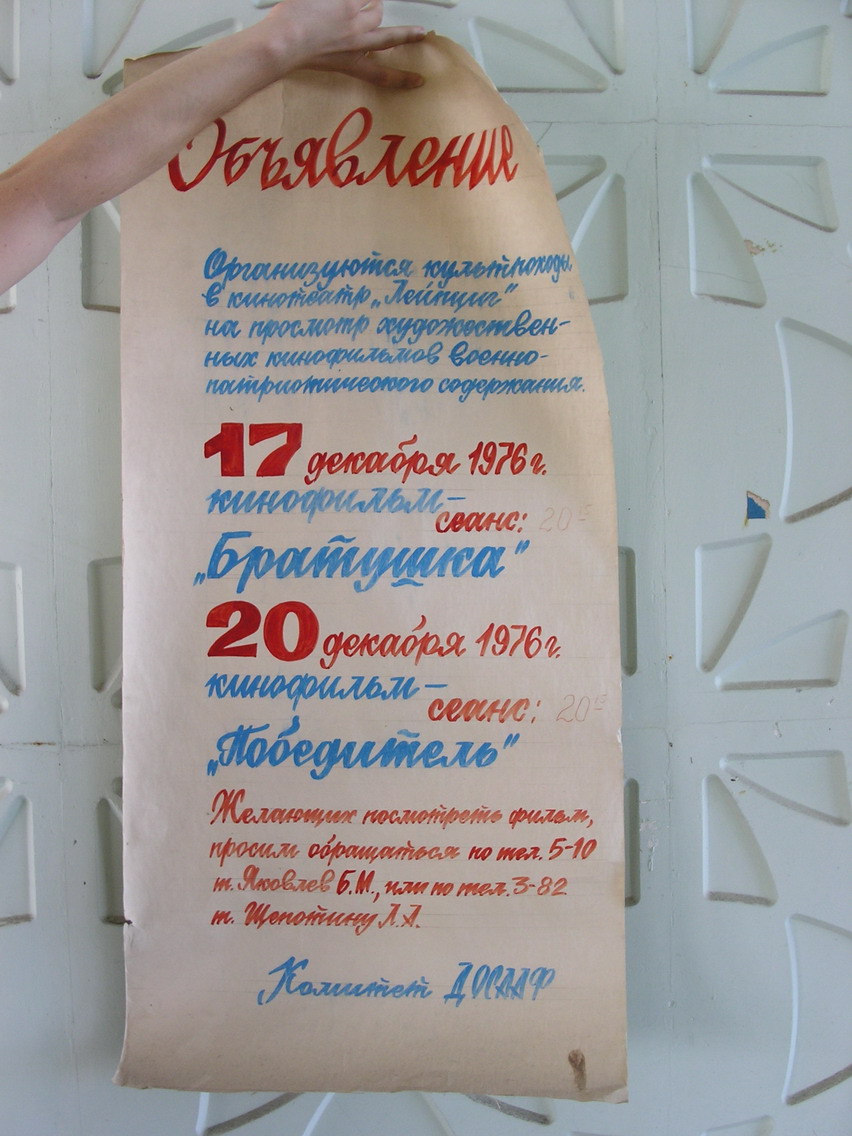 Объявление
Организуются культпоходы
в кинотеатр „Лейпциг"
на просмотр художествен-
ных кинофильмов военно-
патриотического содержания.
17 декабря 1976 г.
кинофильм –
сеанс: 20
„Братушка"
20 декабря 1976 г.
кинофильм –
сеанс: 20
„Победитель"
Желающих посмотреть фильм,
просим обращаться по тел. 5-10
т. Яковлев Б.М., или по тел. 3-82
т. Щепотину Л.А.
Комитет ДОСААФ